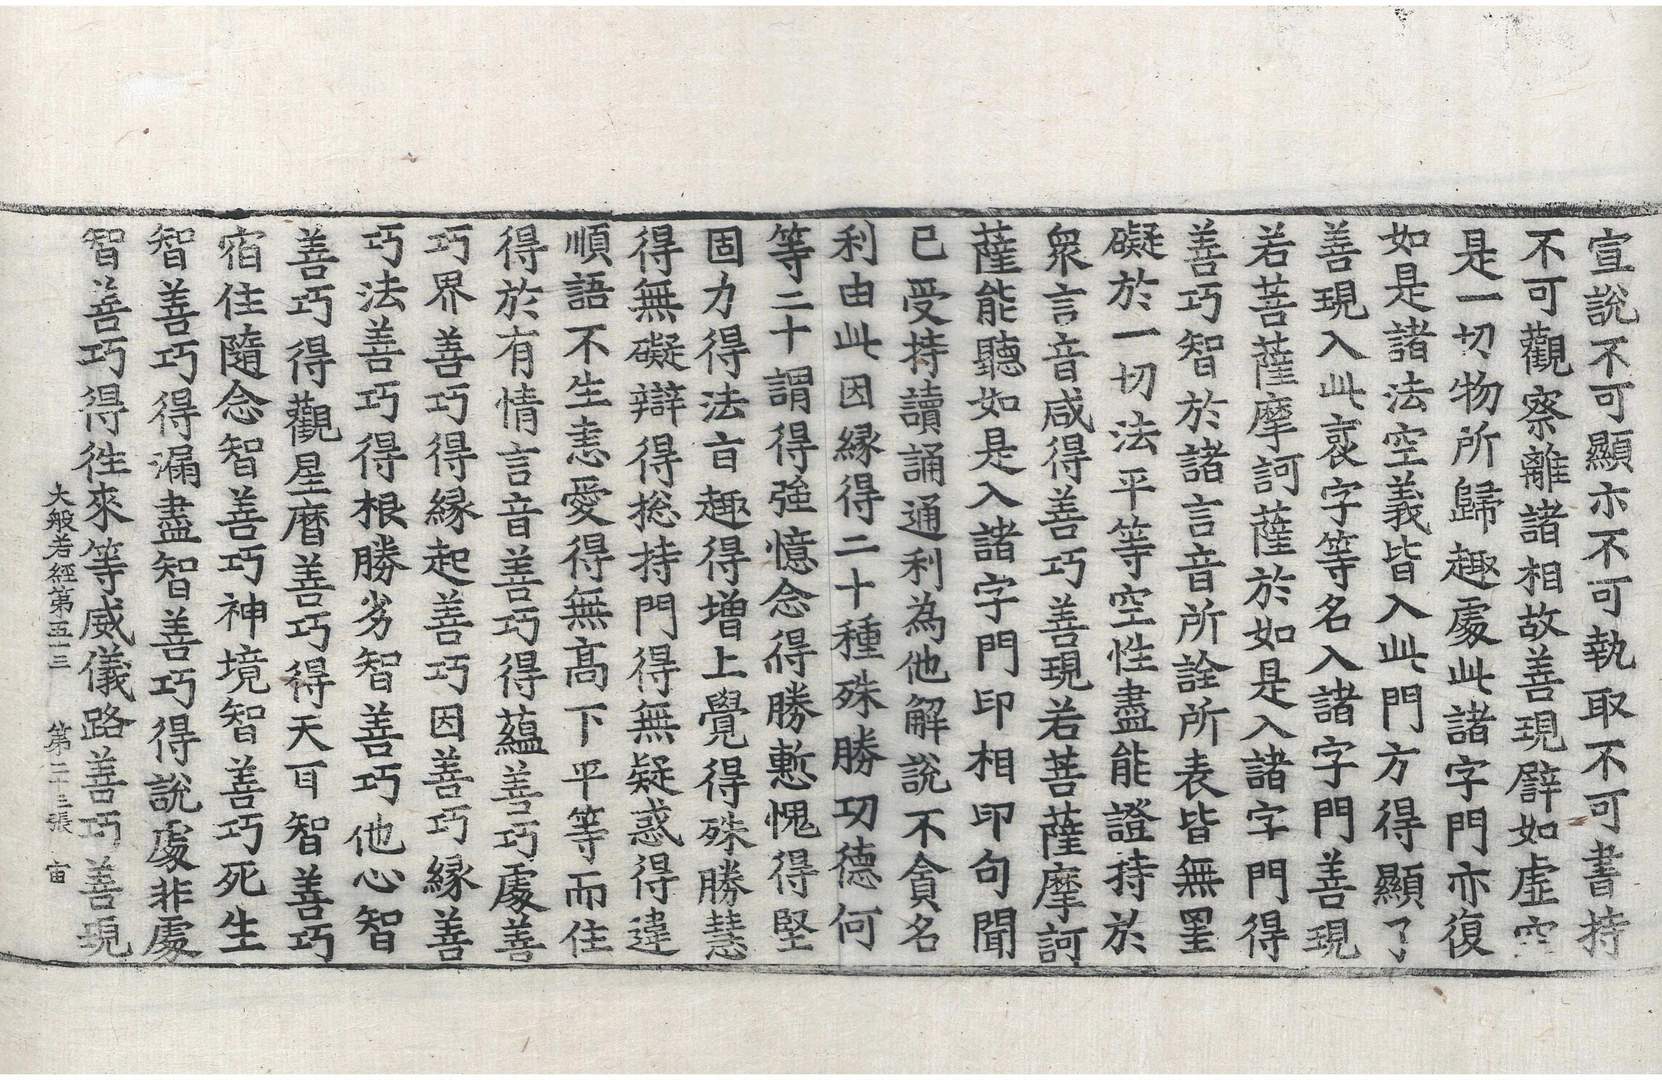 宣說不可顯示不可執取不可書持
不可觀察離諸相故善現譬如虛空
是一切物所歸趣處此諸字門亦復
如是諸法空義皆入此門方得顯了
善現入此裒字等名入諸字門善現
若菩薩摩訶薩於如是入諸字門得
善巧智於諸言音所詮所表皆無罣
礙於一切法平等空性盡能證持於
衆言音咸得善巧善現若菩薩摩訶
薩能聽如是入諸字門印相印句聞
已受持讀誦通利為他解說不貪名
利由此因緣得二十種殊勝功德何
等二十謂得強憶念得勝慙愧得堅
固力得法㫖趣得增上覺得殊勝慧
得無礙辯得捴持門得無疑惑得違
順語不生恚愛得無高下平等而住
得於有情言音善巧得蘊善巧處善
巧界善巧得緣起善巧因善巧緣善
巧法善巧得根勝劣智善巧他心智
善巧得觀星曆善巧得天耳智善巧
宿住隨念智善巧神境智善巧死生
智善巧得漏盡智善巧得說處非處
智善巧得徃來等威儀路善巧善現
大般若經第五十三 第二十三張 宙